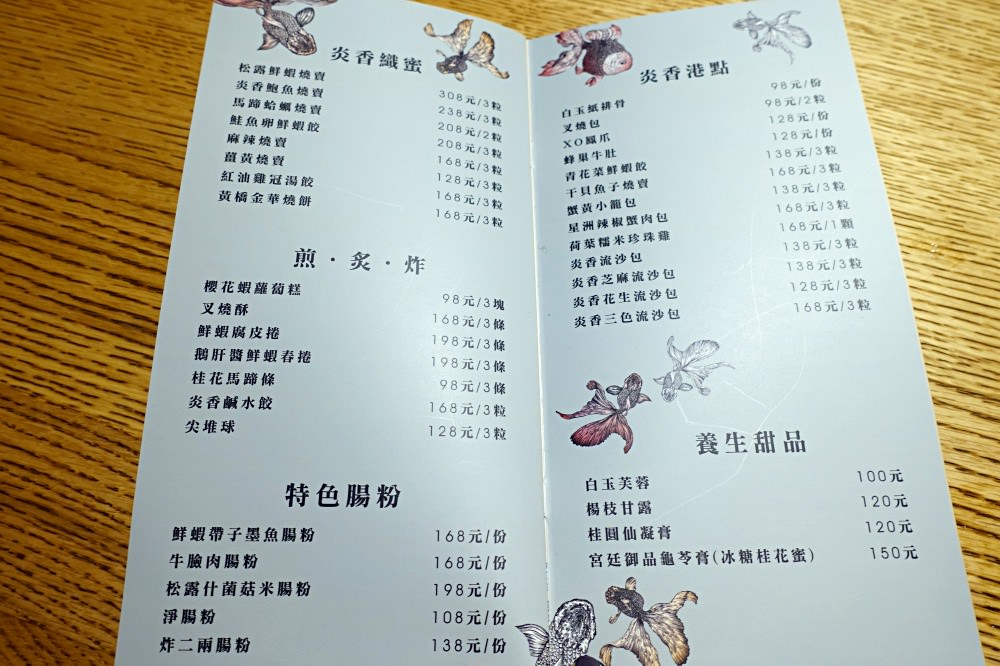 炎香織蜜
松露鮮蝦燒賣 308元/3粒
炎香鮑魚燒賣 238元/3粒
馬蹄蛤蠣燒賣 208元/2粒
鮭魚卵鮮蝦餃 208元/3粒
麻辣燒賣 168元/3粒
薑黃燒賣 128元/3粒
紅油雞冠湯餃 168元/3粒
黃橋金華燒餅 168元/3粒
煎·炙·炸
櫻花蝦蘿蔔糕 98元/3塊
叉燒酥 168元/3條
鮮蝦腐皮捲 198元/3條
鵝肝醬鮮蝦春捲 198元/3條
桂花馬蹄條 98元/3條
炎香鹹水餃 168元/3粒
尖堆球 128元/3粒
特色腸粉
鮮蝦帶子墨魚腸粉 168元/份
牛臉肉腸粉 168元/份
松露什菌菇米腸粉 198元/份
淨腸粉 108元/份
炸二兩腸粉 138元/份
炎香港點
白玉紙排骨 98元/份
叉燒包 98元/2粒
XO鳳爪 128元/份
蜂巢牛肚 128元/份
青花菜鮮蝦餃 138元/3粒
干貝魚子燒賣 168元/3粒
蟹黃小籠包 138元/3粒
星洲辣椒蟹肉包 168元/3粒
荷葉糯米珍珠雞 168元/1顆
炎香流沙包 138元/3粒
炎香芝麻流沙包 138元/3粒
炎香花生流沙包 128元/3粒
炎香三色流沙包 168元/3粒
養生甜品
白玉芙蓉 100元
楊枝甘露 120元
桂圓仙凝膏 120元
宮廷御品龜苓膏(冰糖桂花蜜) 150元